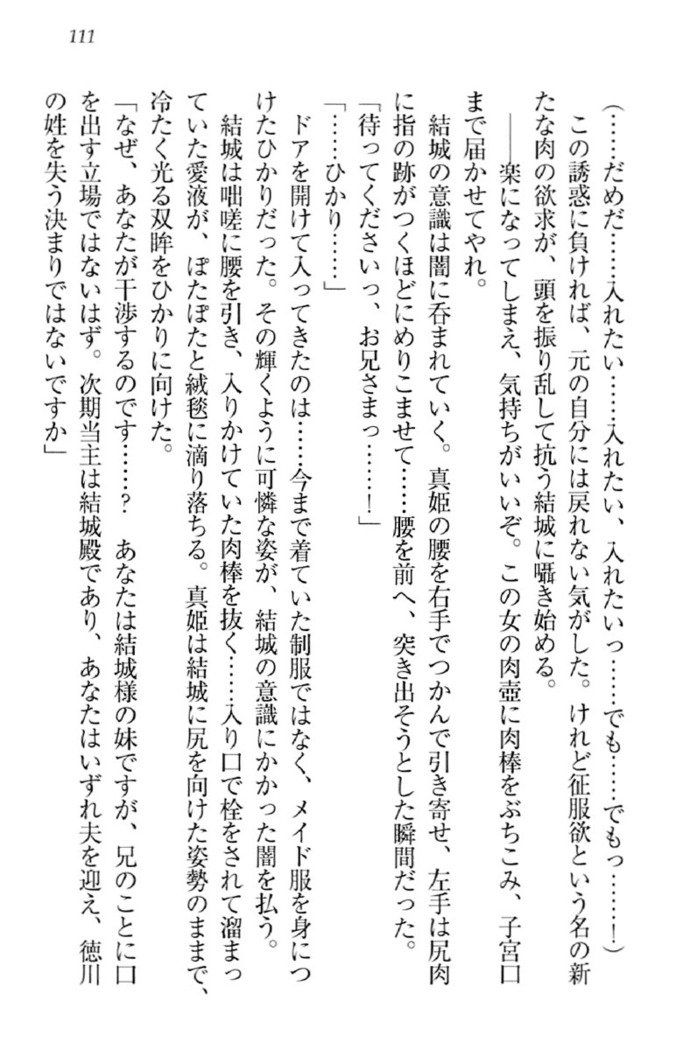 111
(……だめだ……入れたい……入れたい、入れたいっ……でも……でもっ……！)
この誘惑に負ければ、元の自分には戻れない気がした。けれど征服欲という名の新
たな肉の欲求が、頭を振り乱して抗う結城に囁き始める。
――楽になってしまえ、気持ちがいいぞ。この女の肉壺に肉棒をぶちこみ、子宮口
まで届かせてやれ。
結城の意識は闇に呑まれていく。真姫の腰を右手でつかんで引き寄せ、左手は尻肉
に指の跡がつくほどにめりこませて……腰を前へ、突き出そうとした瞬間だった。
「待ってくださいっ、お兄さまっ……！」
「……ひかり……」
ドアを開けて入ってきたのは……今まで着ていた制服ではなく、メイド服を身につ
けたひかりだった。その輝くように可憐な姿が、結城の意識にかかった闇を払う。
結城は咄嗟に腰を引き、入りかけていた肉棒を抜く……入り口で栓をされて溜まっ
ていた愛液が、ぽたぽたと絨毯に滴り落ちる。真姫は結城に尻を向けた姿勢のままで、
冷たく光る双眸をひかりに向けた。
「なぜ、あなたが干渉するのです……？　あなたは結城様の妹ですが、兄のことに口
を出す立場ではないはず。次期当主は結城殿であり、あなたはいずれ夫を迎え、徳川
の姓を失う決まりではないですか」